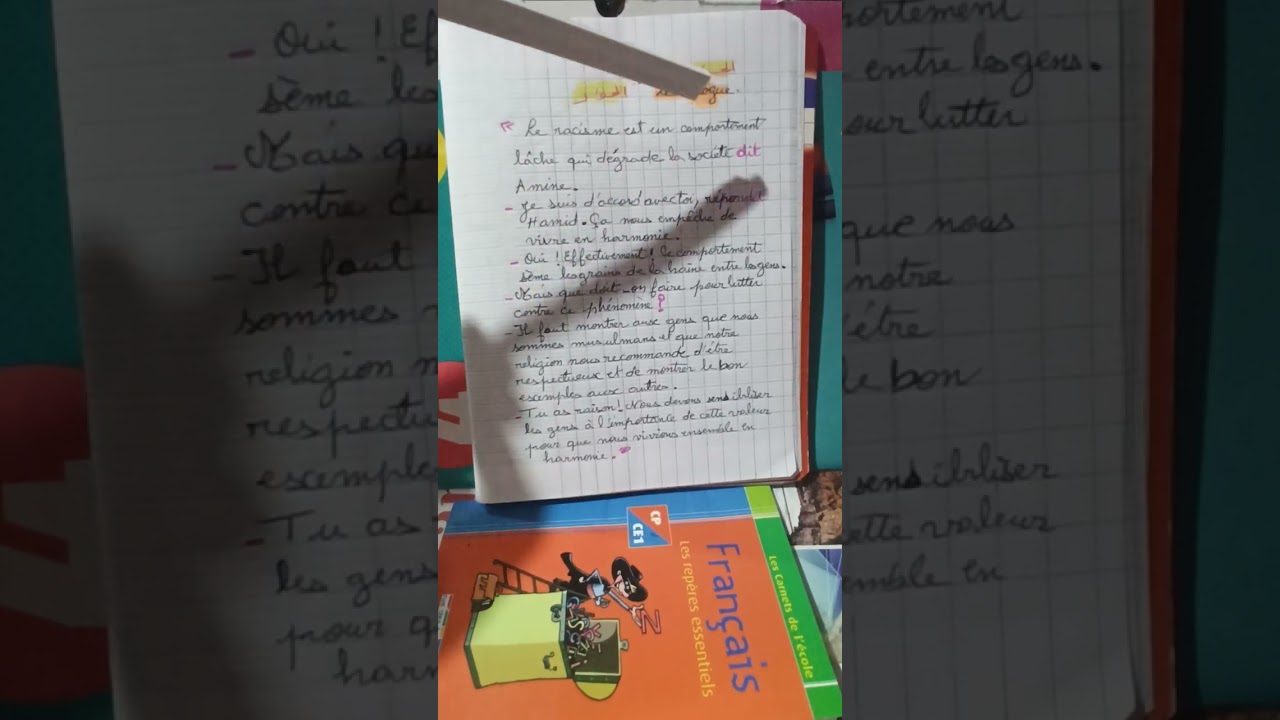 الحوار
« Le racisme est un comportement
lâche qui dégrade la société dit
Amine.
- Je suis d'accord avec toi, répondit
Hamid. Ça nous empêche de
vivre en harmonie.
- Oui ! Effectivement ! Ce comportement
sème les grains de la haine entre les gens.
- Mais que doit-on faire pour lutter
contre ce phénomène ?
Il faut montrer aux gens que nous
sommes musulmans et que notre
religion nous recommande d'être
respectueux et de montrer le bon
exemples aux autres.
- Tu as raison ! Nous devons sensibiliser
les gens à l'importance de cette valeur
pour que nous vivions ensemble en
harmonie. »
CP
CE1
Français
Les repères essentiels
Les Carnets de l'école